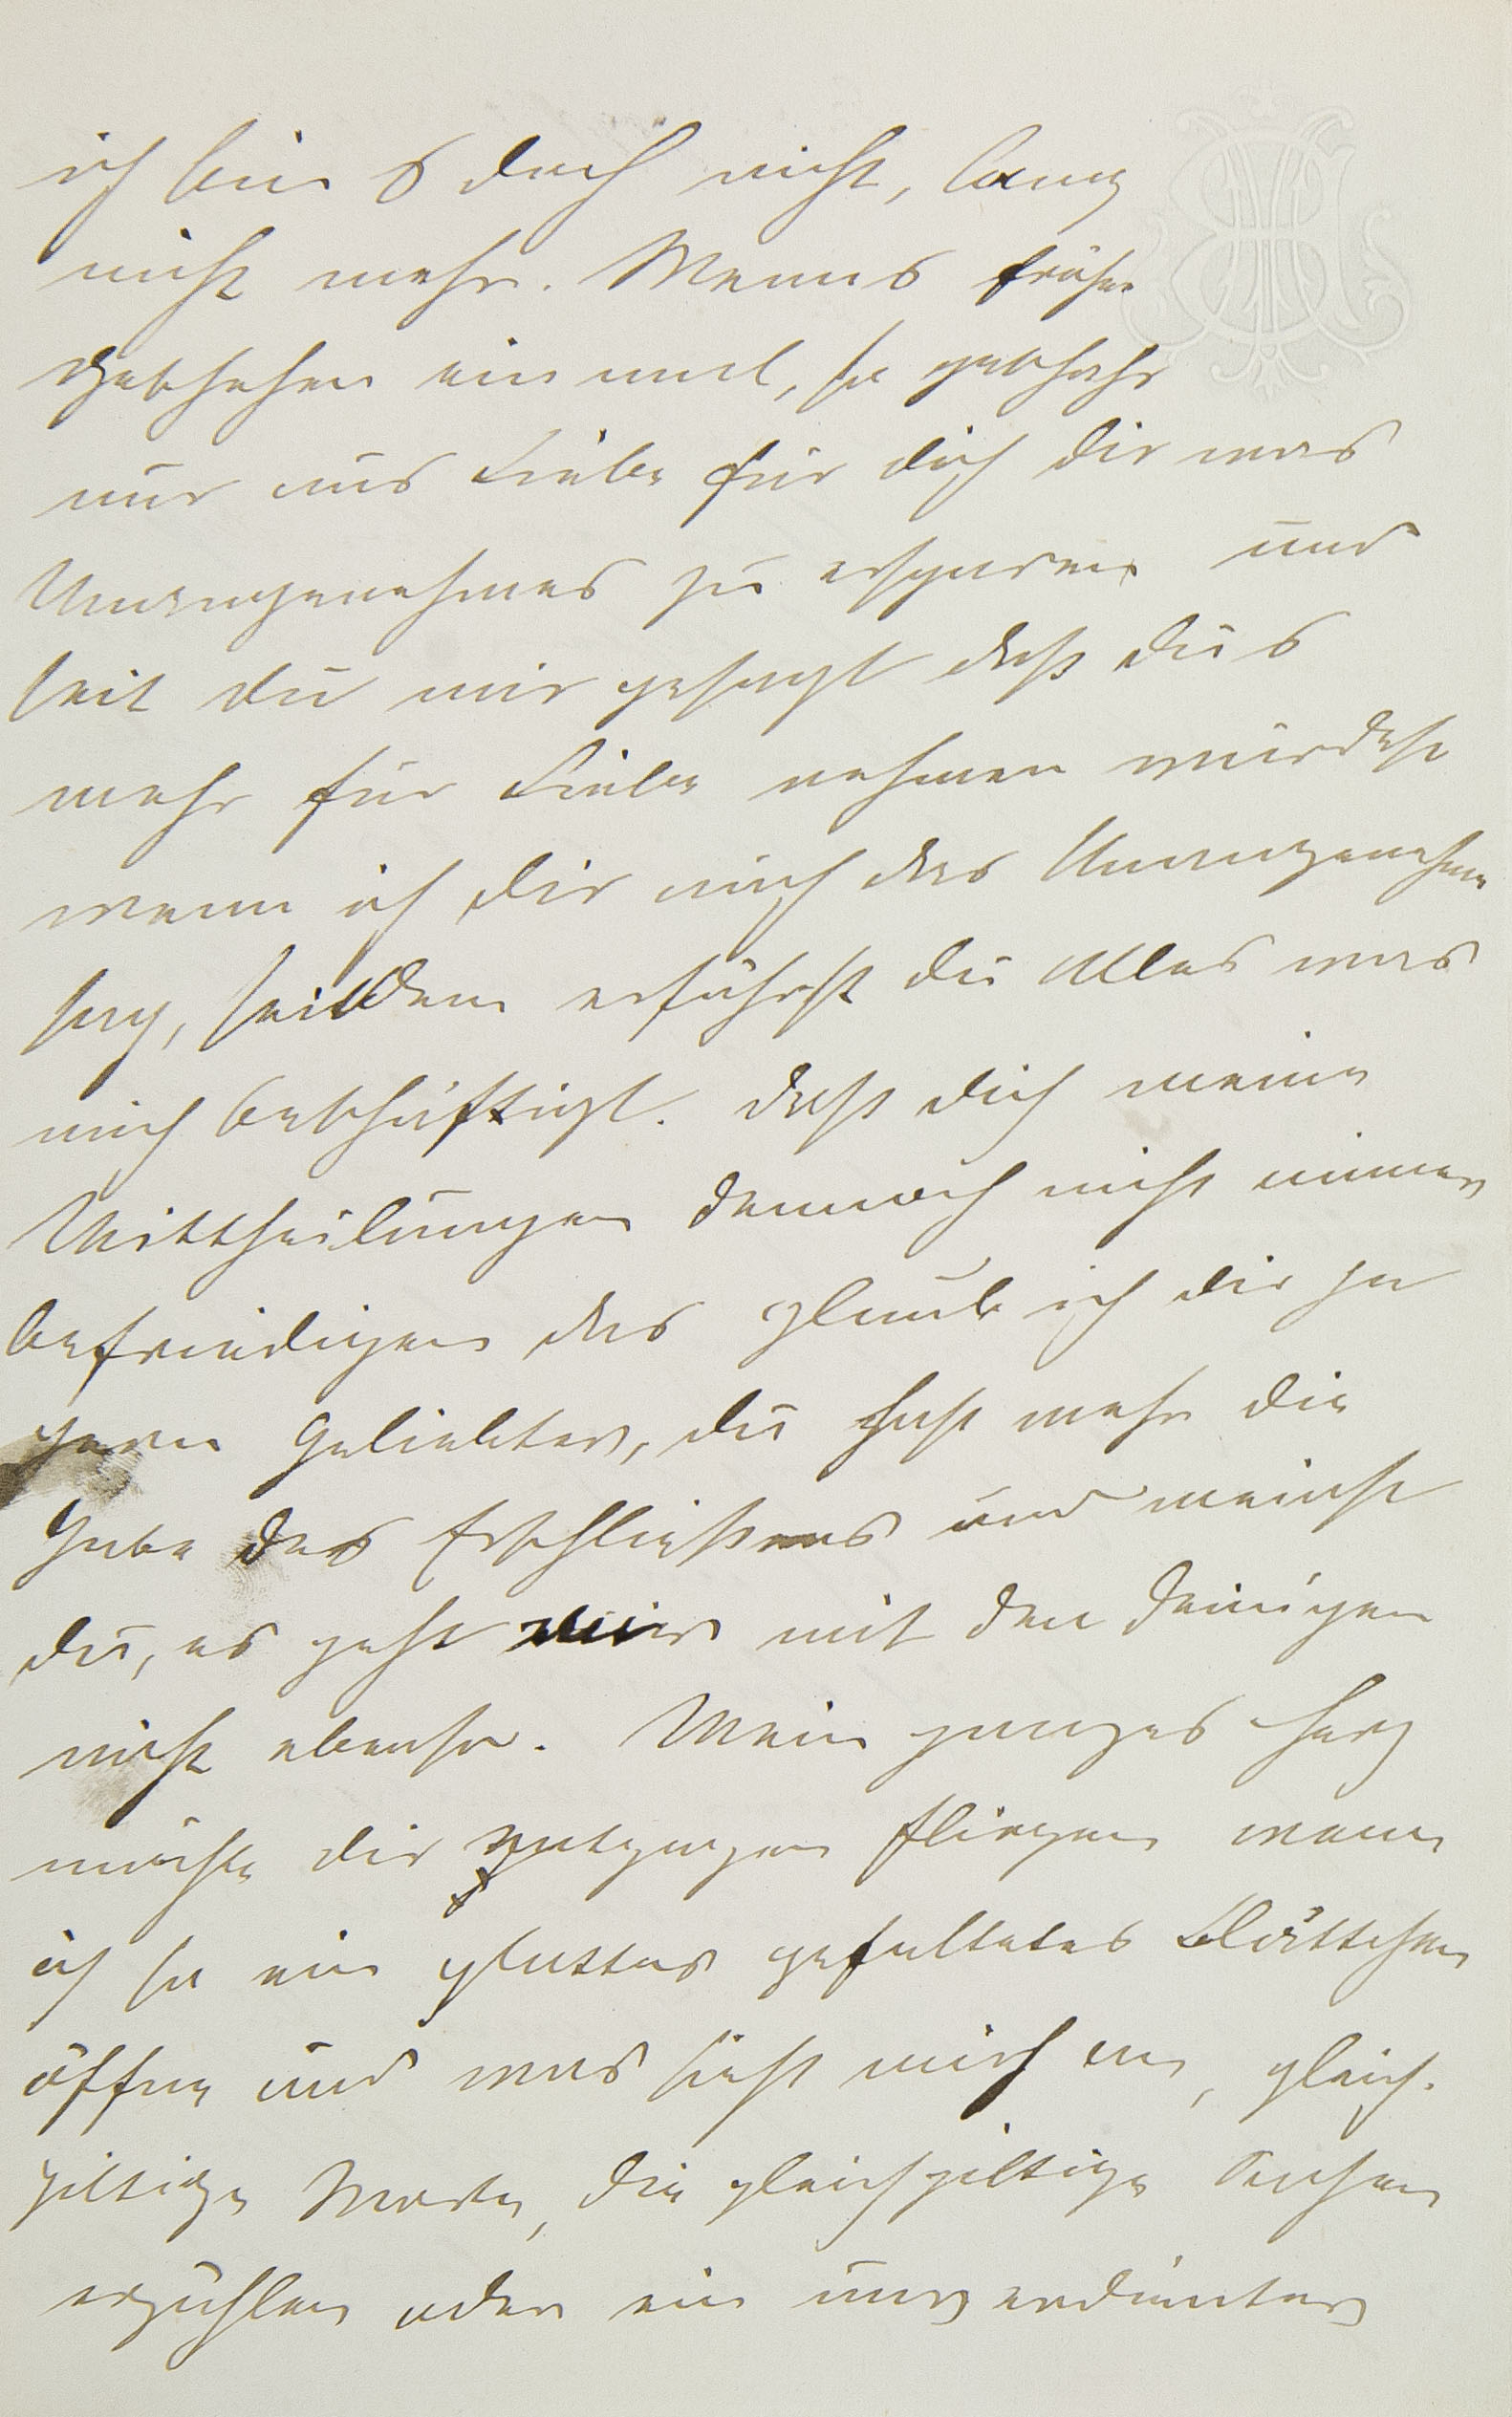 ich bin's doch nicht, lang
nicht mehr. Wenns früher
geschehen einmal, so geschah's
nur aus Liebe für dich dir was
Unangenehmes zu ersparen und
seit du mir gesagt daß du's
mehr für Liebe nehmen würdest
wenn ich dir auch das Unangenehme
sag, seitdem erfährst du Alles was
mich beschäftigt. Daß dich meine
Mittheilungen dennoch nicht immer
befriedigen das glaub ich dir ja
gern Geliebter, du hast mehr die
Gabe des Erschließens und meinst
du, es geht mir mit den Deinigen
nicht ebenso. Mein ganzes Herz
möchte dir entgegen fliegen wenn
ich so ein glattes gefaltetes Blättchen
öffne und was sieht mich an, gleich-
giltige Worte, die gleichgiltige Sachen
erzählen oder ein unverdienter